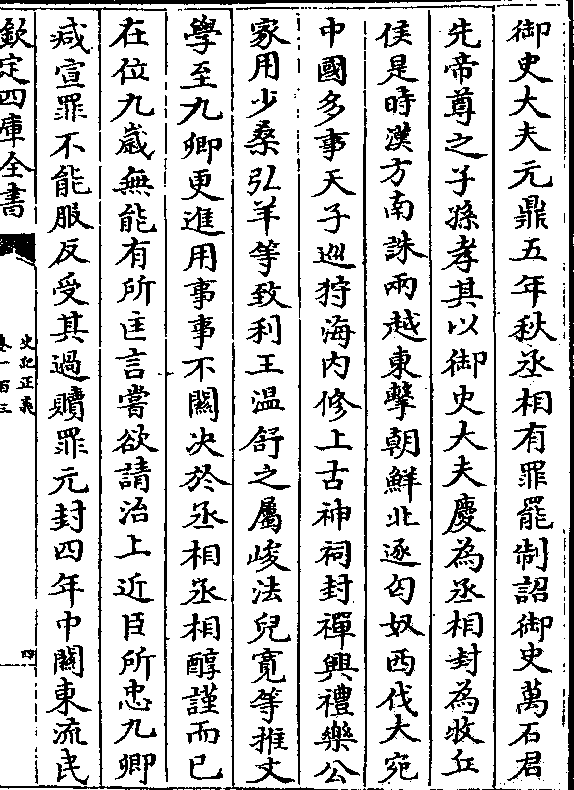 御史大夫元鼎五年秋丞相有罪罷制詔御史萬石君
先帝尊之子孫孝其以御史大夫慶為丞相封為牧丘
侯是時漢方南誅兩越東擊朝鮮北逐匈奴西伐大宛
中國多事天子巡狩海内修上古神祠封禪興禮樂公
家用少桑弘羊等致利王温舒之屬峻法兒寛等推文
學至九卿更進用事事不關决於丞相丞相醇謹而已
在位九嵗無能有所匡言嘗欲請治上近臣所忠九卿
咸宣罪不能服反受其過贖罪元封四年中關東流民
欽定四庫全書
史記正義
卷一百三
四